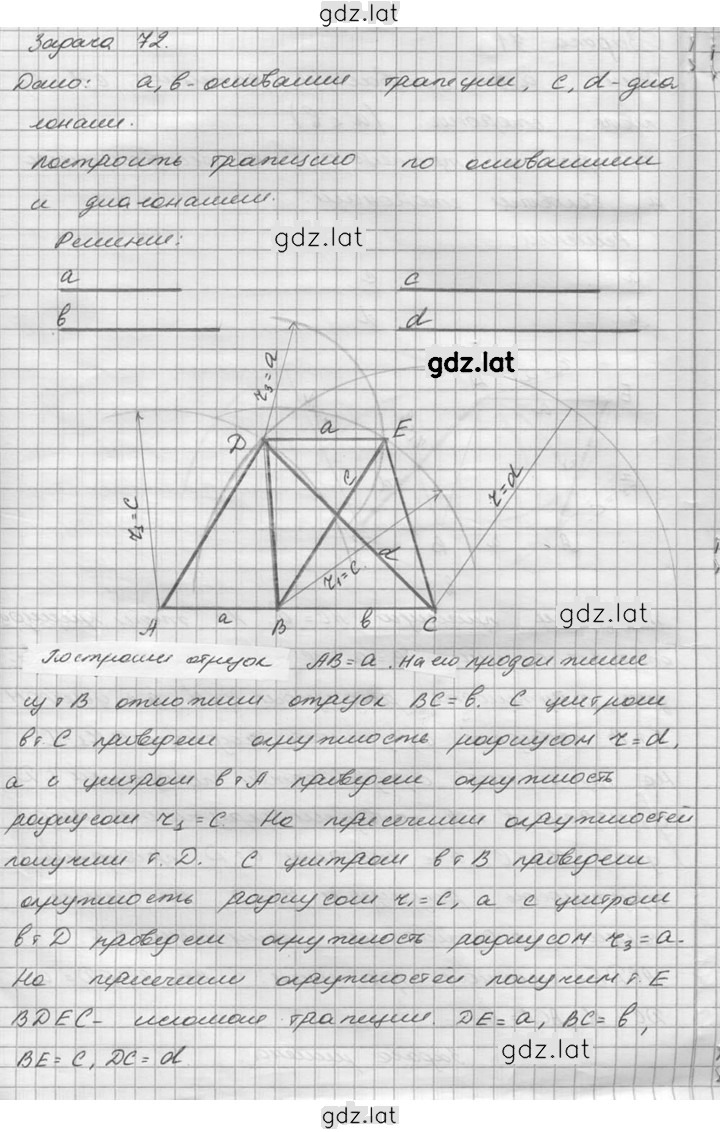 gdz.lat
Задача 72.
Дано: a, b - основания трапеции, c, d - диа
гонали.
построить трапецию по основаниям
и диагоналям.
Решение:
gdz.lat
a
c
b
d
gdz.lat
r3 = a
D
a
E
c
r1 = c
r = d
d
r1 = c
gdz.lat
A
a
B
b
C
Построим отрезок AB = a. На его продолжение
от т B отложим отрезок BC = b. С центром
в т C проведем окружность радиусом r = d,
а с центром в т A проведем окружность
радиусом r1 = c На пересечении окружностей
получим т. D. С центром в т B проведем
окружность радиусом r1 = c, а с центром
в т D проведем окружность радиусом r3 = a.
На пересечении окружностей получим т. E
BDEC - искомая трапеция. DE = a, BC = b,
BE = c, DC = d
gdz.lat
gdz.lat